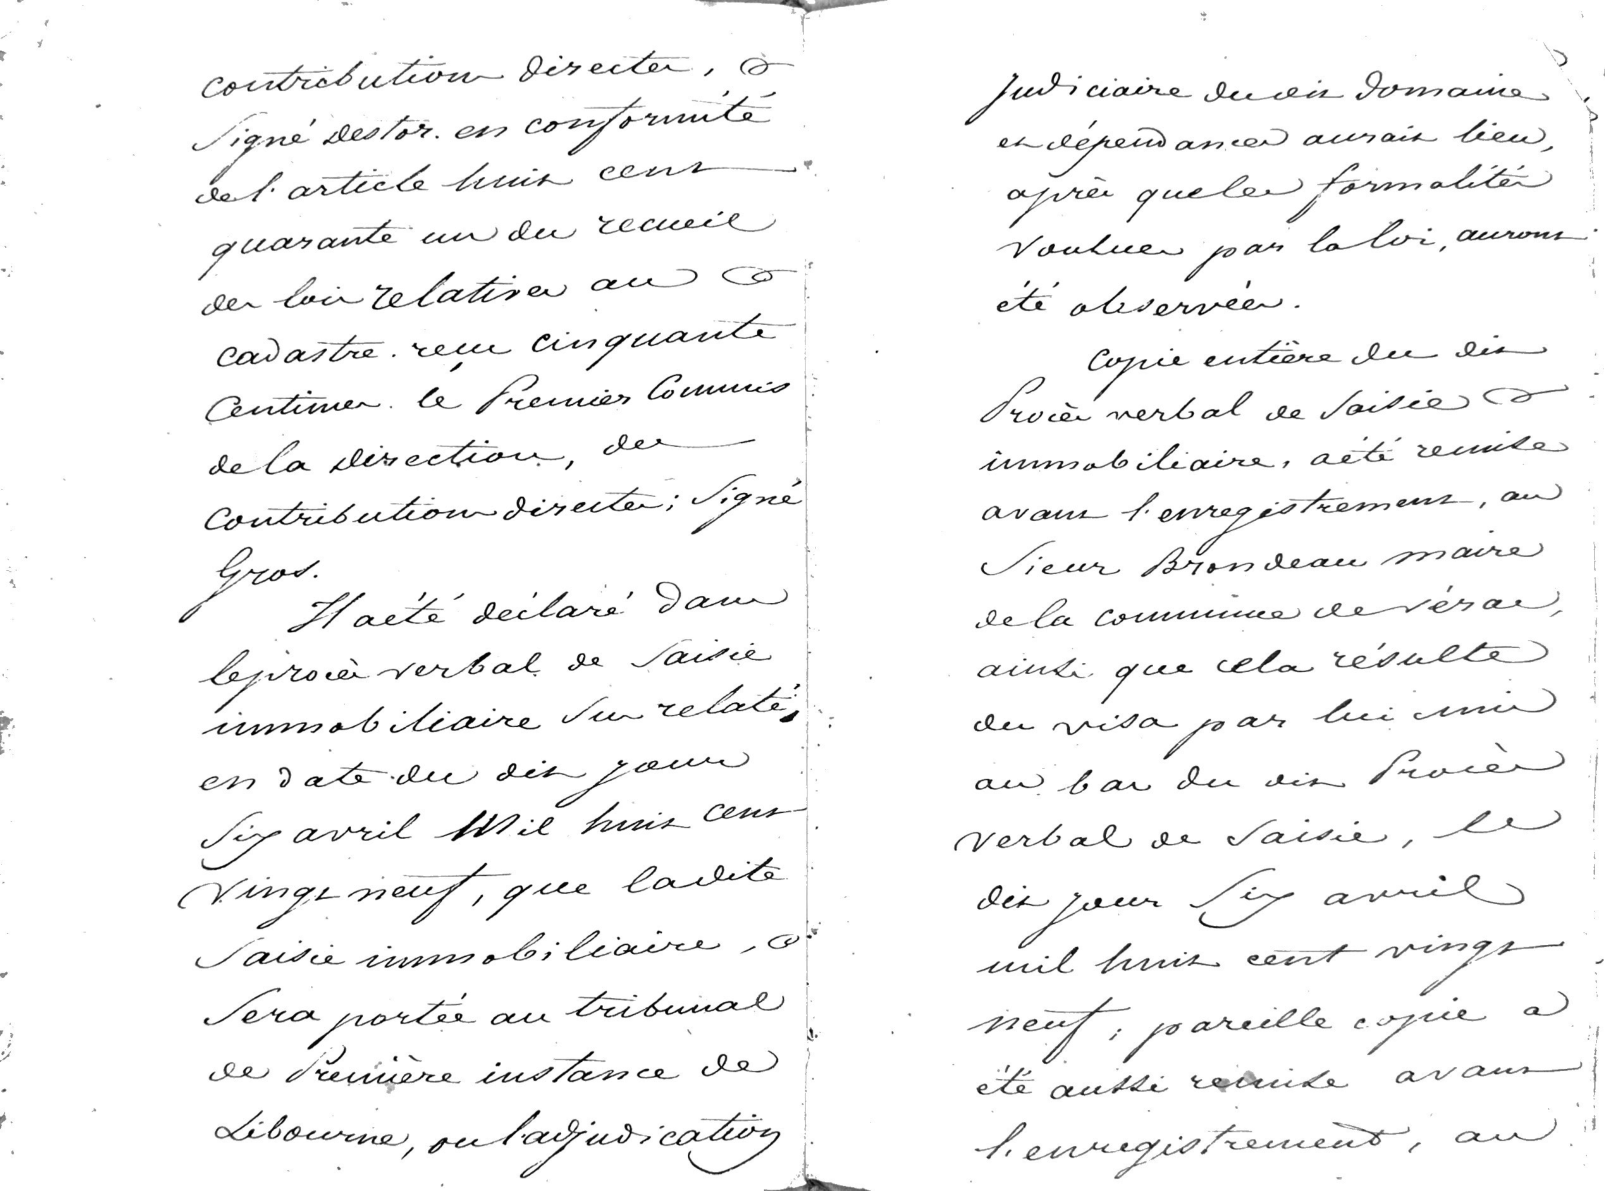 contributions directes,
Signé Destor. en conformité
de l'article huit cent
quarante un du recueil
des lois relatives au
cadastre. reçu cinquante
Centimes. le Premier Commis
de la Direction, des
Contributions directes; Signé
Gros.
Il a été déclaré dans
le procès verbal de Saisie
immobiliaire Sus relaté,
en date du dit jour
Six avril Mil huit cent
vingt neuf, que ladite
Saisie immobiliaire,
Sera portée au tribunal
de Première instance de
Libourne, ou l'adjudication
Judiciaire du dit Domaine
et dépendances aurait lieu,
après que les formalités
Voulues par la loi, auront
été observées.
Copie entière du dit
Procès verbal de Saisie
immobiliaire, a été remise
avant l'enregistrement, au
Sieur Brondeau maire
de la commune de Vérac,
ainsi que cela résulte
du visa par lui mis
au bas du dit Procès
verbal de Saisie, le
dit jour Six avril
mil huit cent vingt
neuf; pareille copie a
été aussi remise avant
l'enregistrement, au